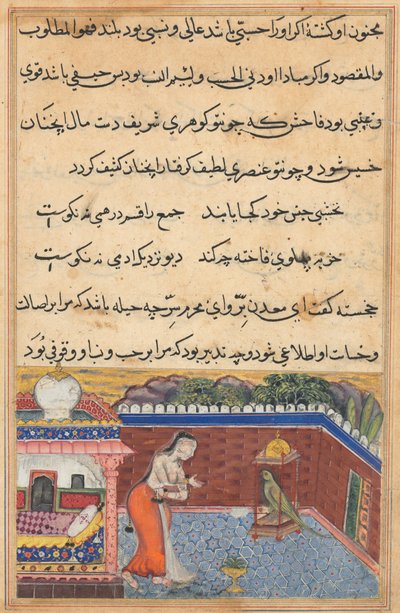 مجنون او کشته اکر او را حسبی باشد عالی و نسبی بود بلند فهو المطلوب
والمقصود و اکر مبادا ادنی الحسب و لئیم النسب بود پس حیفی باشد قوی
و غبنی بود فاحش که چو تو کوهری شریف دست مال انچنان
خسیس شود و چو تو عنصری لطیف کرفتار انچنان کثیف کردد
نخشبی جنس خود کجا یابند جمع راقم درهی نه نکوست
پهلوی فاخته چه کند دیو نزدیک ادمی نه نکوست
خجسته کفت ای معدن برّ و ای محرم سرّ چه حیله باشد که مرا بر اصالت
و خساست او اطلاعی شود و چه تدبیر بود که مرا بر حسب و نسب او وقوفی بُوَد